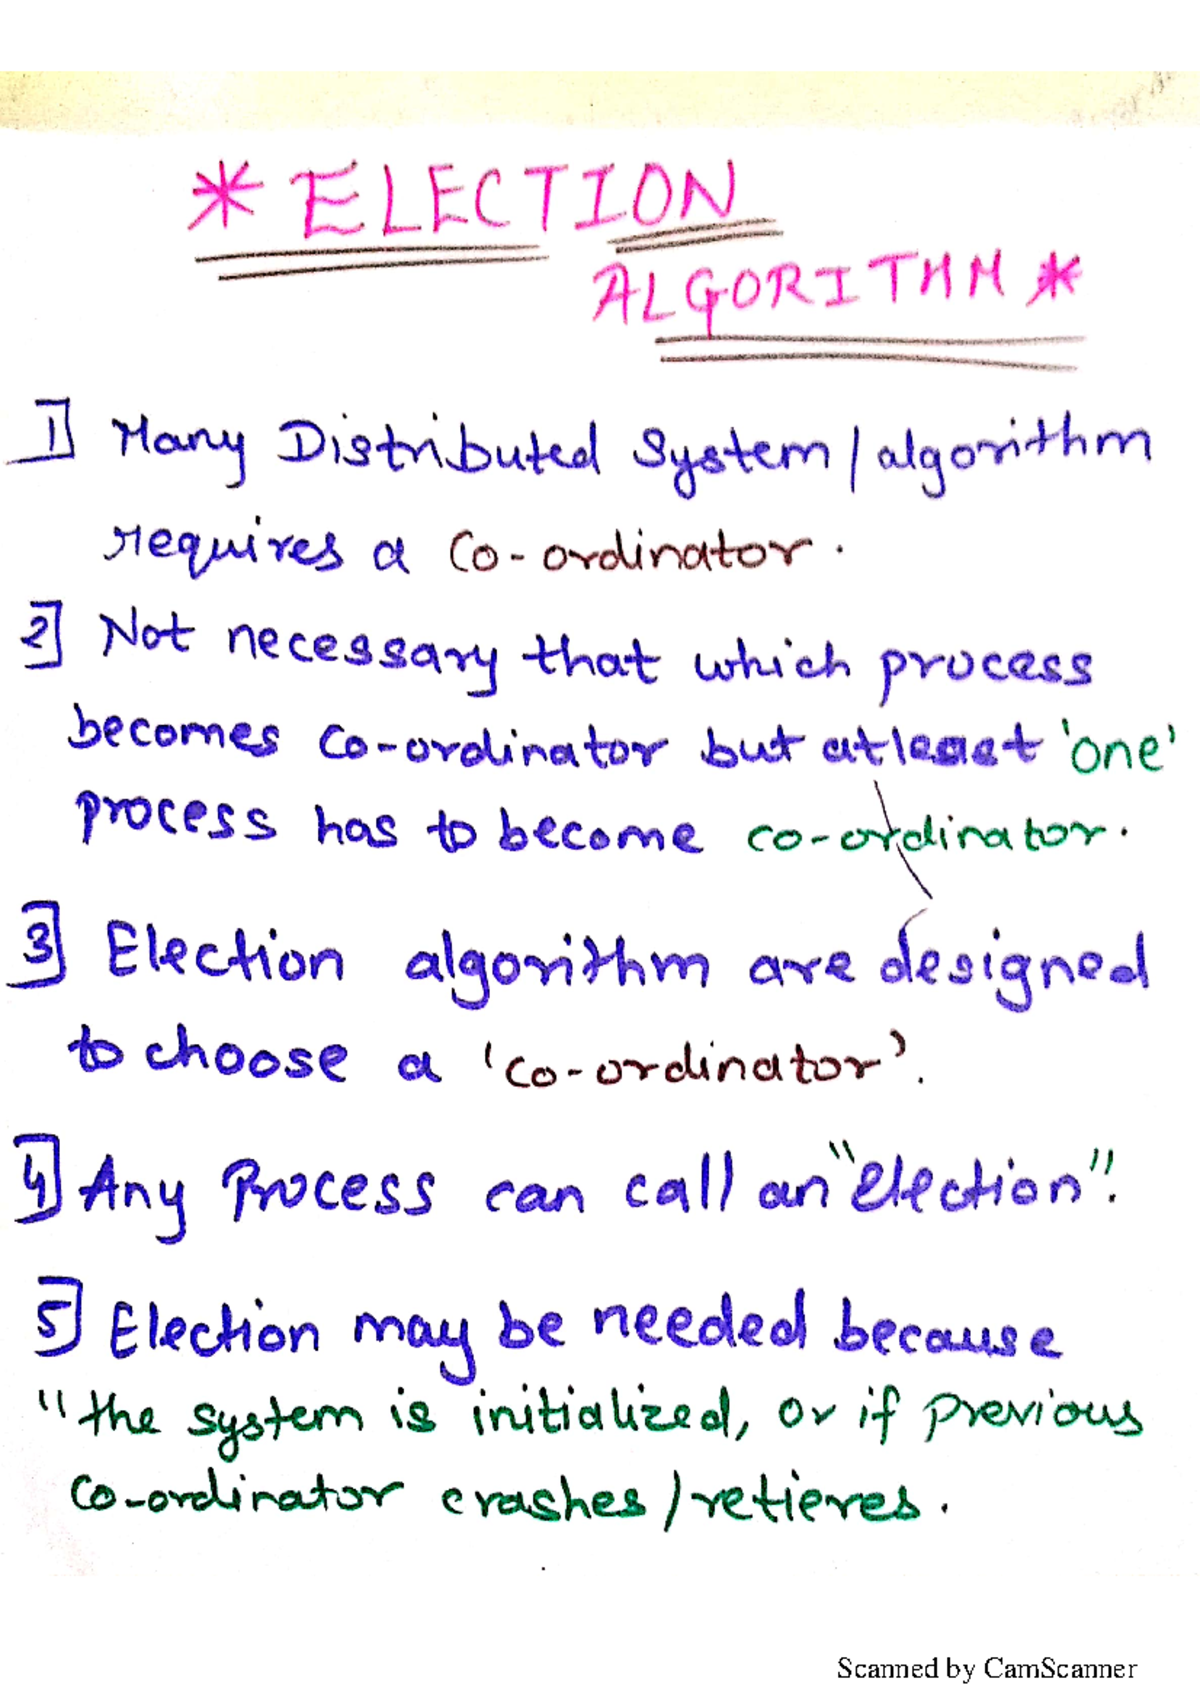 * ELECTION
ALGORITHM *
1] Many Distributed System / algorithm
requires a Co-ordinator.
2] Not necessary that which process
becomes co-ordinator but atleast 'one'
process has to become co-ordinator.
3] Election algorithm are designed
to choose a 'co-ordinator'.
4] Any Process can call an "election".
5] Election may be needed because
"the system is initialized, or if previous
co-ordinator crashes/retieres.
Scanned by CamScanner